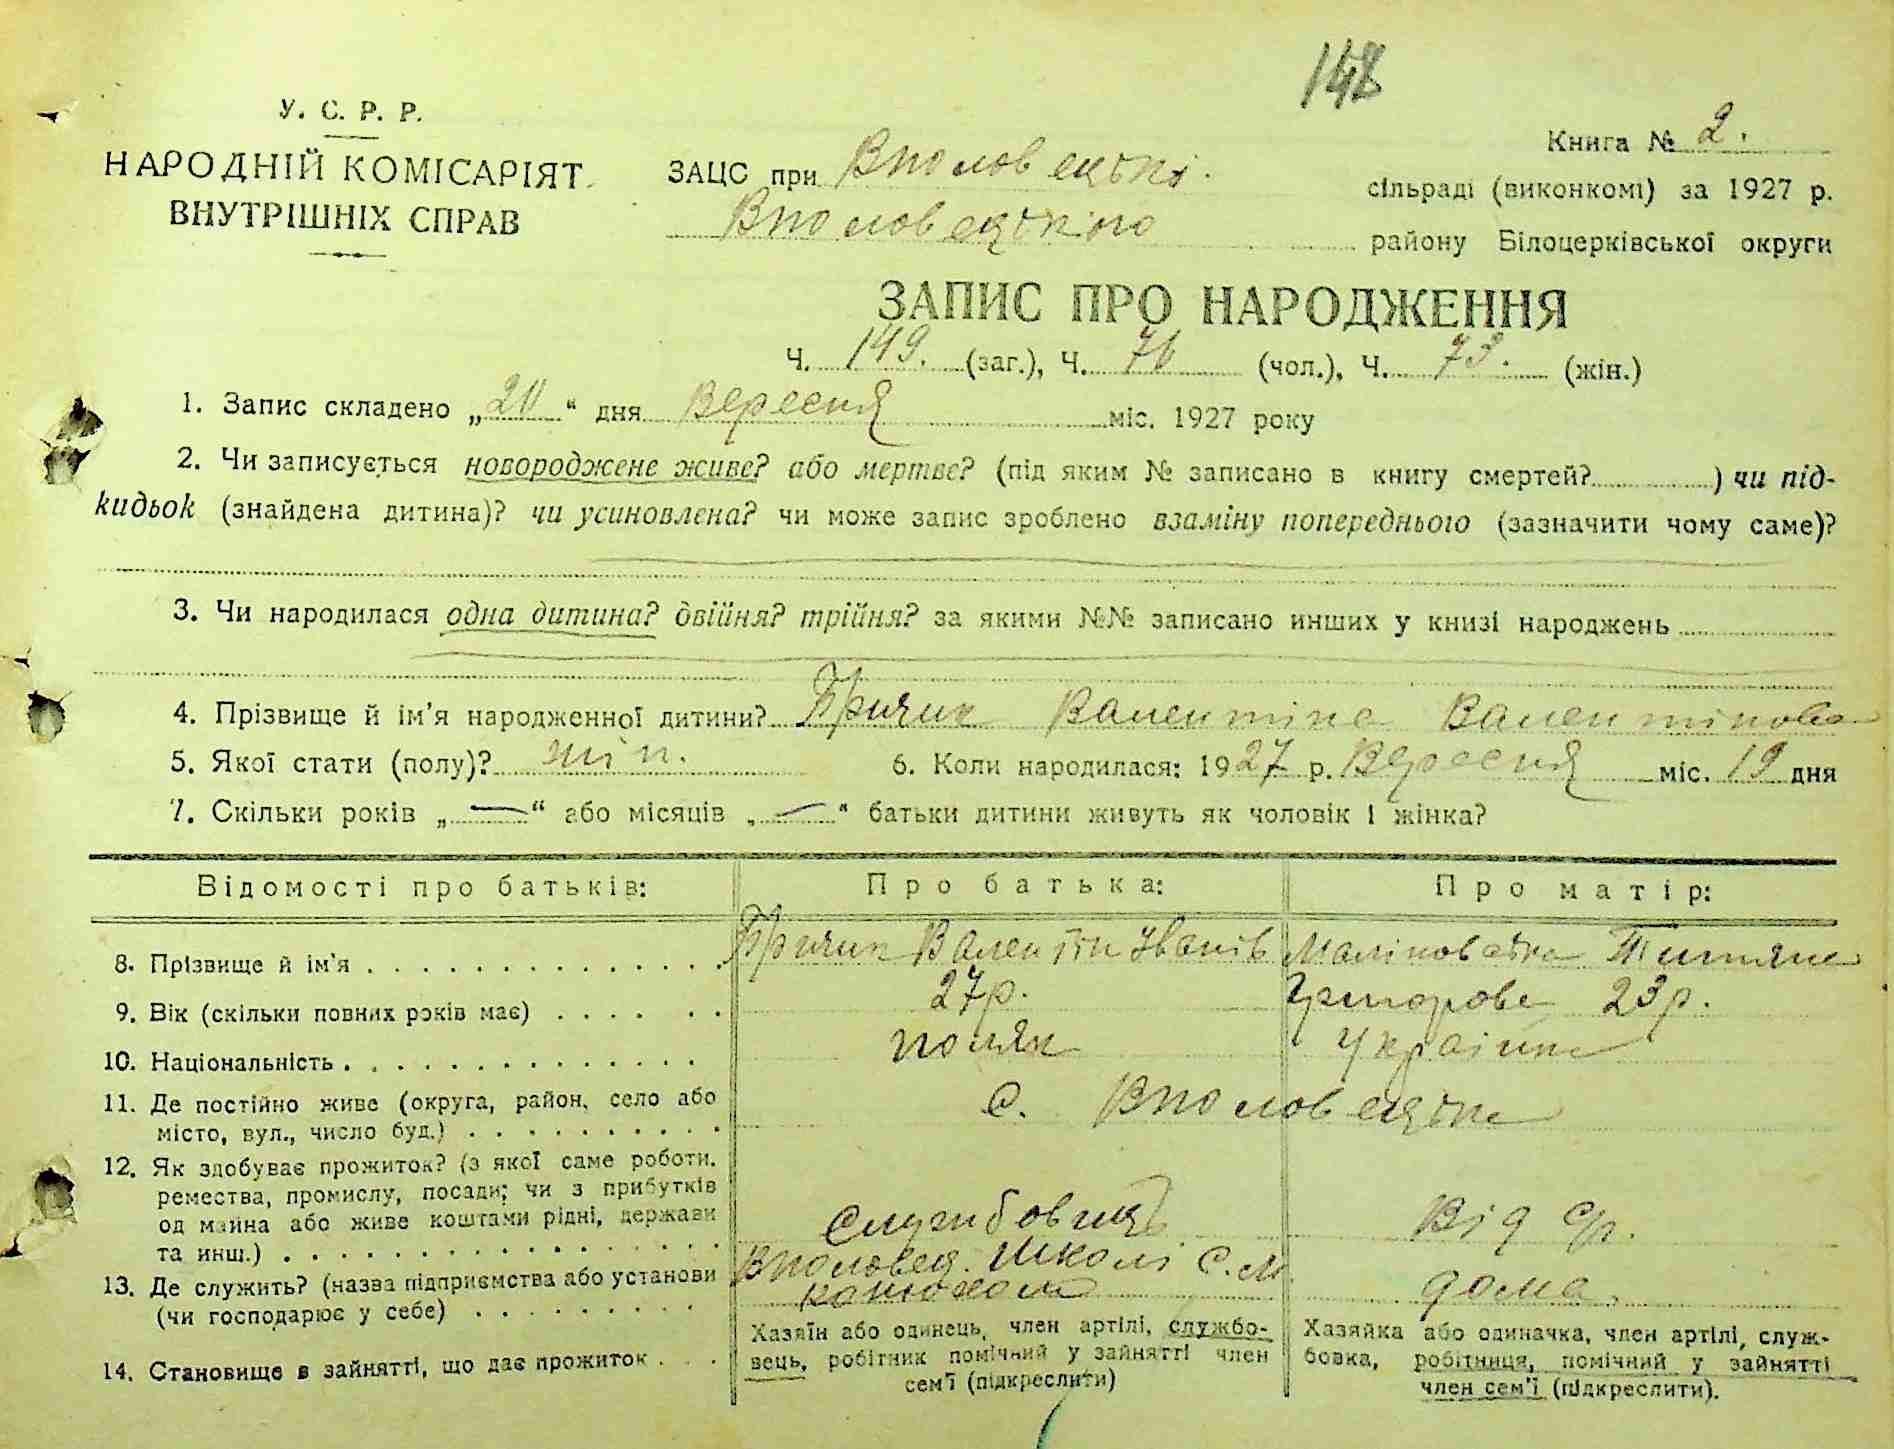 148
У. С. Р. Р.
НАРОДНІЙ КОМІСАРІЯТ
ВНУТРІШНІХ СПРАВ
Книга № 2.
ЗАЦС при Вполовецькі. сільраді (виконкомі) за 1927 р.
Вполовецького району Білоцерківської округи
ЗАПИС ПРО НАРОДЖЕННЯ
Ч. 149. (заг.), Ч. 76 (чол.), Ч. 73. (жін.)
1. Запис складено „20“ дня Вересня міс. 1927 року
2. Чи записується новороджене живе? або мертве? (під яким № записано в книгу смертей? ) чи під-
кидьок (знайдена дитина)? чи усиновлена? чи може запис зроблено взаміну попереднього (зазначити чому саме)?
3. Чи народилася одна дитина? двійня? трійня? за якими №№ записано инших у книзі народжень
4. Прізвище й ім'я народженної дитини? Валентіна Валентінова
5. Якої стати (полу)? жін. 6. Коли народилася: 1927 р. Вересня міс. 19 дня
7. Скільки років „—“ або місяців „—“ батьки дитини живуть як чоловік і жінка?
Відомості про батьків: Про батька: Про матір:
8. Прізвище й ім'я Валентін Іванів Маліновська Титяна
9. Вік (скільки повних років має) 27р. Григорова 23р.
10. Національність поляк Українка
11. Де постійно живе (округа, район, село або
місто, вул., число буд.) с. Вполовецьке
12. Як здобуває прожиток? (з якої саме роботи,
ремества, промислу, посади; чи з прибутків
од майна або живе коштами рідні, держави
та инш.) Службовець Від с/г.
13. Де служить? (назва підприємства або установи
(чи господарює у себе) Вполовец. Школі С.М. конюхом дома.
14. Становище в зайнятті, що дає прожиток
Хазяїн або одинець, член артілі, службо-
вець, робітник помічний у зайнятті член
сем'ї (підкреслити)
Хазяйка або одиначка, член артілі, служ-
бовка, робітниця, помічний у зайнятті
член сем'ї (підкреслити).